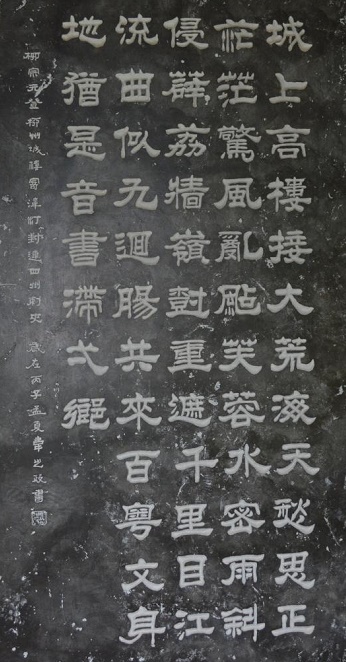 城上高樓接大荒海天愁思正
茫茫驚風亂颭芙蓉水密雨斜
侵薜荔牆嶺樹重遮千里目江
流曲似九迴腸共來百粵文身
地猶是音書滯弌鄉
柳宗元登柳州城樓寄漳汀封連四州刺史 歲在丙子孟夏書